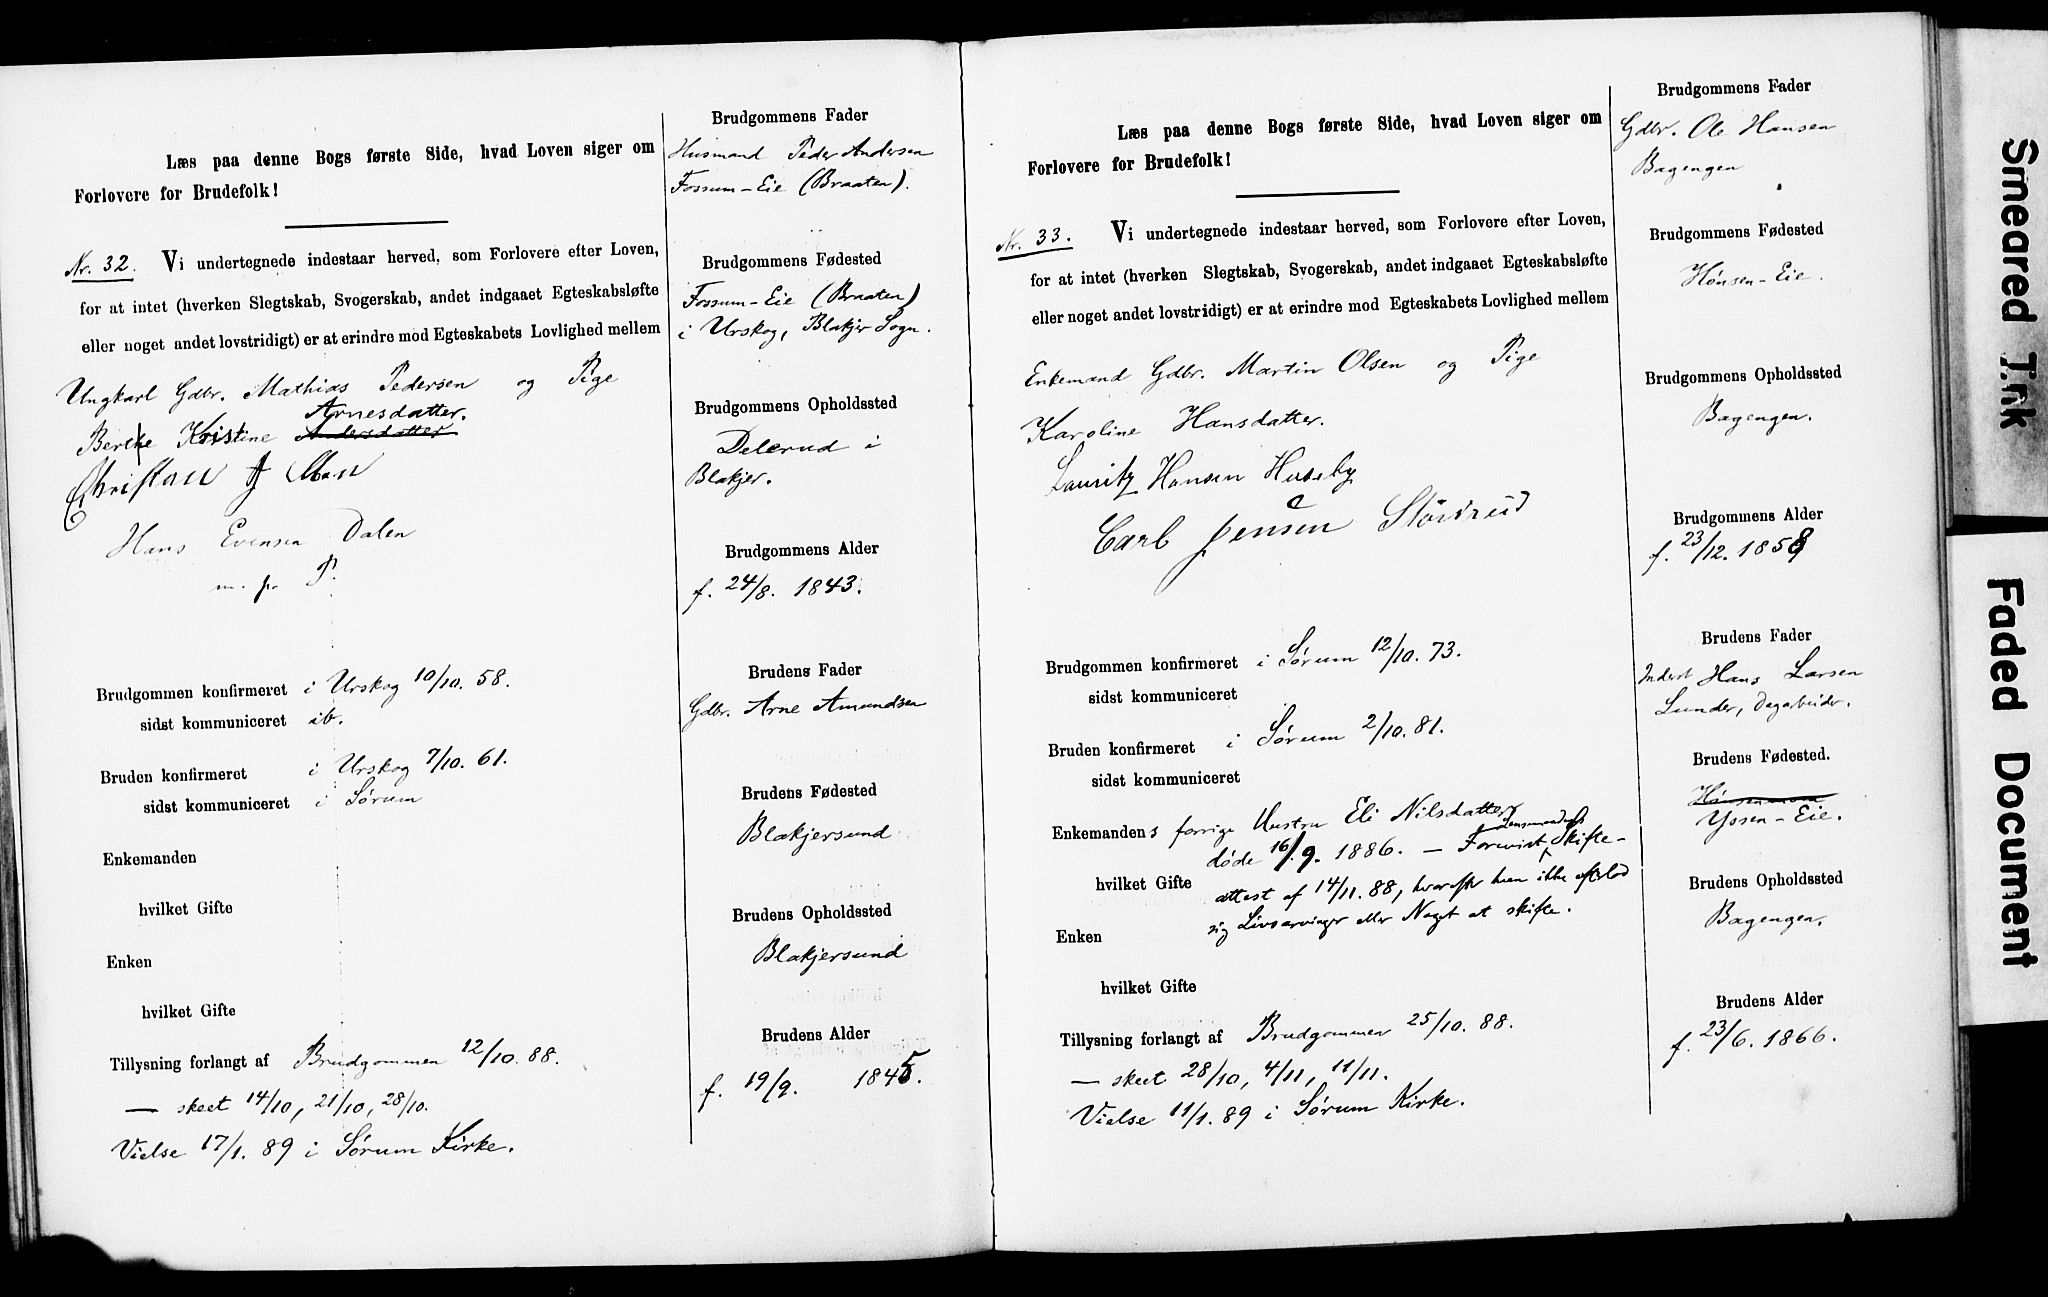 Læs paa denne Bogs første Side, hvad Loven siger om
Forlovere for Brudefolk!
Nr. 32. Vi undertegnede indestaar herved, som Forlovere efter Loven,
for at intet (hverken Slegtskab, Svogerskab, andet indgaaet Egteskabsløfte
eller noget andet lovstridigt) er at erindre mod Egteskabets Lovlighed mellem
Ungkarl Gdbr. Mathias Pedersen og Pige
Arnesdatter.
Berthe Kristine Andersdatter
Christian J
Hans Evensen Dalen
m. p. P.
Brudgommen konfirmeret i Urskog 10/10. 58.
sidst kommuniceret ib.
Bruden konfirmeret i Urskog 7/10. 61.
sidst kommuniceret i Sørum
Enkemanden
hvilket Gifte
Enken
hvilket Gifte
Tillysning forlangt af Brudgommen 12/10. 88.
— skeet 14/10, 21/10, 28/10.
Vielse 17/1. 89 i Sørum Kirke.
Brudgommens Fader
Husmand Peder Andersen
Fossum-Eie (Braaten).
Brudgommens Fødested
Fossum-Eie (Braaten)
i Urskog, Blakjer Sogn.
Brudgommens Opholdssted
Delerud i
Blakjer.
Brudgommens Alder
f. 24/8. 1843.
Brudens Fader
Gdbr. Arne Amundsen
Brudens Fødested
Blakjersund
Brudens Opholdssted
Blakjersund
Brudens Alder
f. 19/9. 1845.
Læs paa denne Bogs første Side, hvad Loven siger om
Forlovere for Brudefolk!
Nr. 33. Vi undertegnede indestaar herved, som Forlovere efter Loven,
for at intet (hverken Slegtskab, Svogerskab, andet indgaaet Egteskabsløfte
eller noget andet lovstridigt) er at erindre mod Egteskabets Lovlighed mellem
Enkemand Gdbr. Martin Olsen og Pige
Karoline Hansdatter.
Lauritz Hansen Huseby
Carl Jensen Størsrud
Brudgommen konfirmeret i Sørum 12/10. 73.
sidst kommuniceret
Bruden konfirmeret i Sørum 2/10. 81.
sidst kommuniceret
Enkemandens forrige Hustru Eli Nilsdatter
døde 16/9. 1886. — Forevist Lensmandens Skifte-
hvilket Gifte attest af 14/11. 88, hvorefter hun ikke efterlod
sig Livsarvinger eller Noget at skifte.
Enken
hvilket Gifte
Tillysning forlangt af Brudgommen 25/10. 88.
— skeet 28/10, 4/11, 11/11.
Vielse 11/1. 89 i Sørum Kirke.
Brudgommens Fader
Gdbr. Ole Hansen
Bagengen
Brudgommens Fødested
Hønsen-Eie.
Brudgommens Opholdssted
Bagengen.
Brudgommens Alder
f. 23/12. 1858
Brudens Fader
Inderst Hans Larsen
Lunder, Dagarbeider.
Brudens Fødested.
Yssen-Eie.
Brudens Opholdssted
Bagengen.
Brudens Alder
f. 23/6. 1866.
Smeared Ink
Faded Document